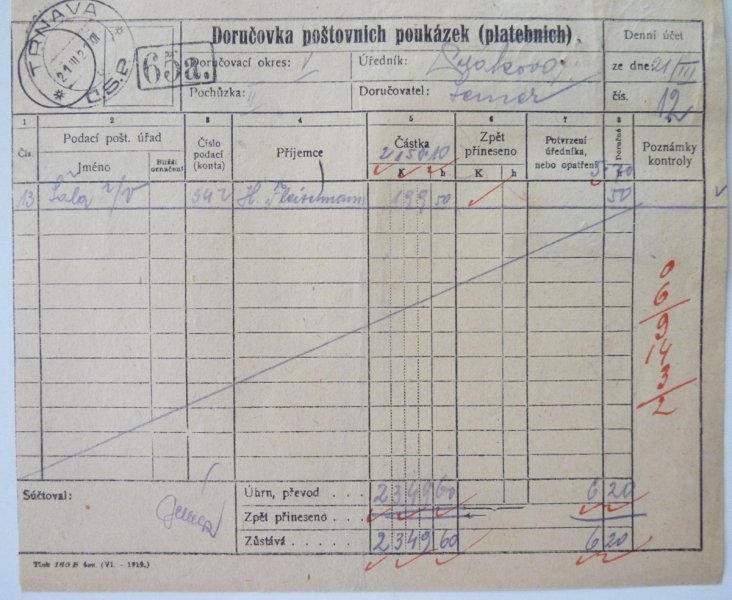 TRNAVA
21 III 21 VIII
Č.S.P.
65a.
Doručovka poštovních poukázek (platebních)
Denní účet
Doručovací okres: V
Úředník:
ze dne: 21/III
Pochůzka: II
Doručovatel:
čís. 12
1 2 3 4 5 6 7 8 9
Čís.
Podací pošt. úřad
Jméno
Bližší označení
Číslo podací (konta)
Příjemce
Částka
2150 10
K h
Zpět přineseno
K h
Potvrzení úředníka, nebo opatření
Doručné
h
5 70
Poznámky kontroly
13 Šala n/V 342 H. Fleischmann 199 50 50
0
6
9
14
3
2
Súčtoval:
Úhrn, převod . . . . 2349 60 6 20
Zpět přineseno . . .
Zůstává . . . . . . 2349 60 6 20
Tisk 160 B čes. (VI. - 1919.)